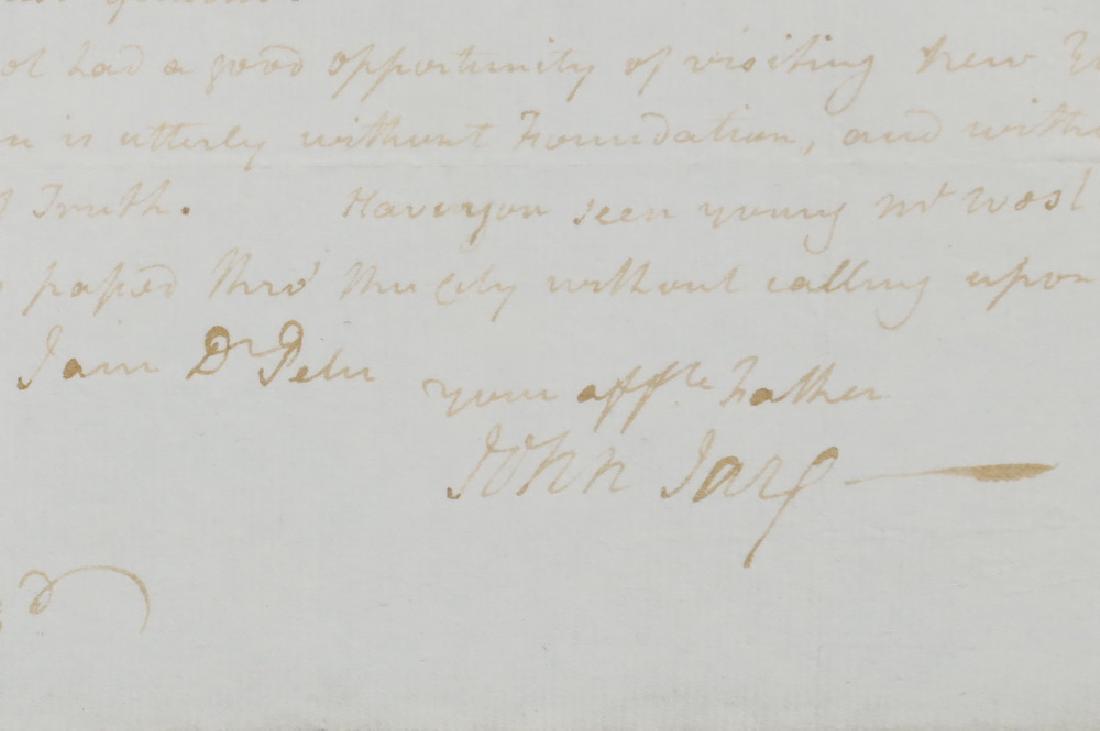 had a good opportunity of visiting new
is utterly without Foundation, and with
Truth. Have you seen young Mr
passed thro' this City without calling upon
I am Dr Peter
your affte Father
John Jay